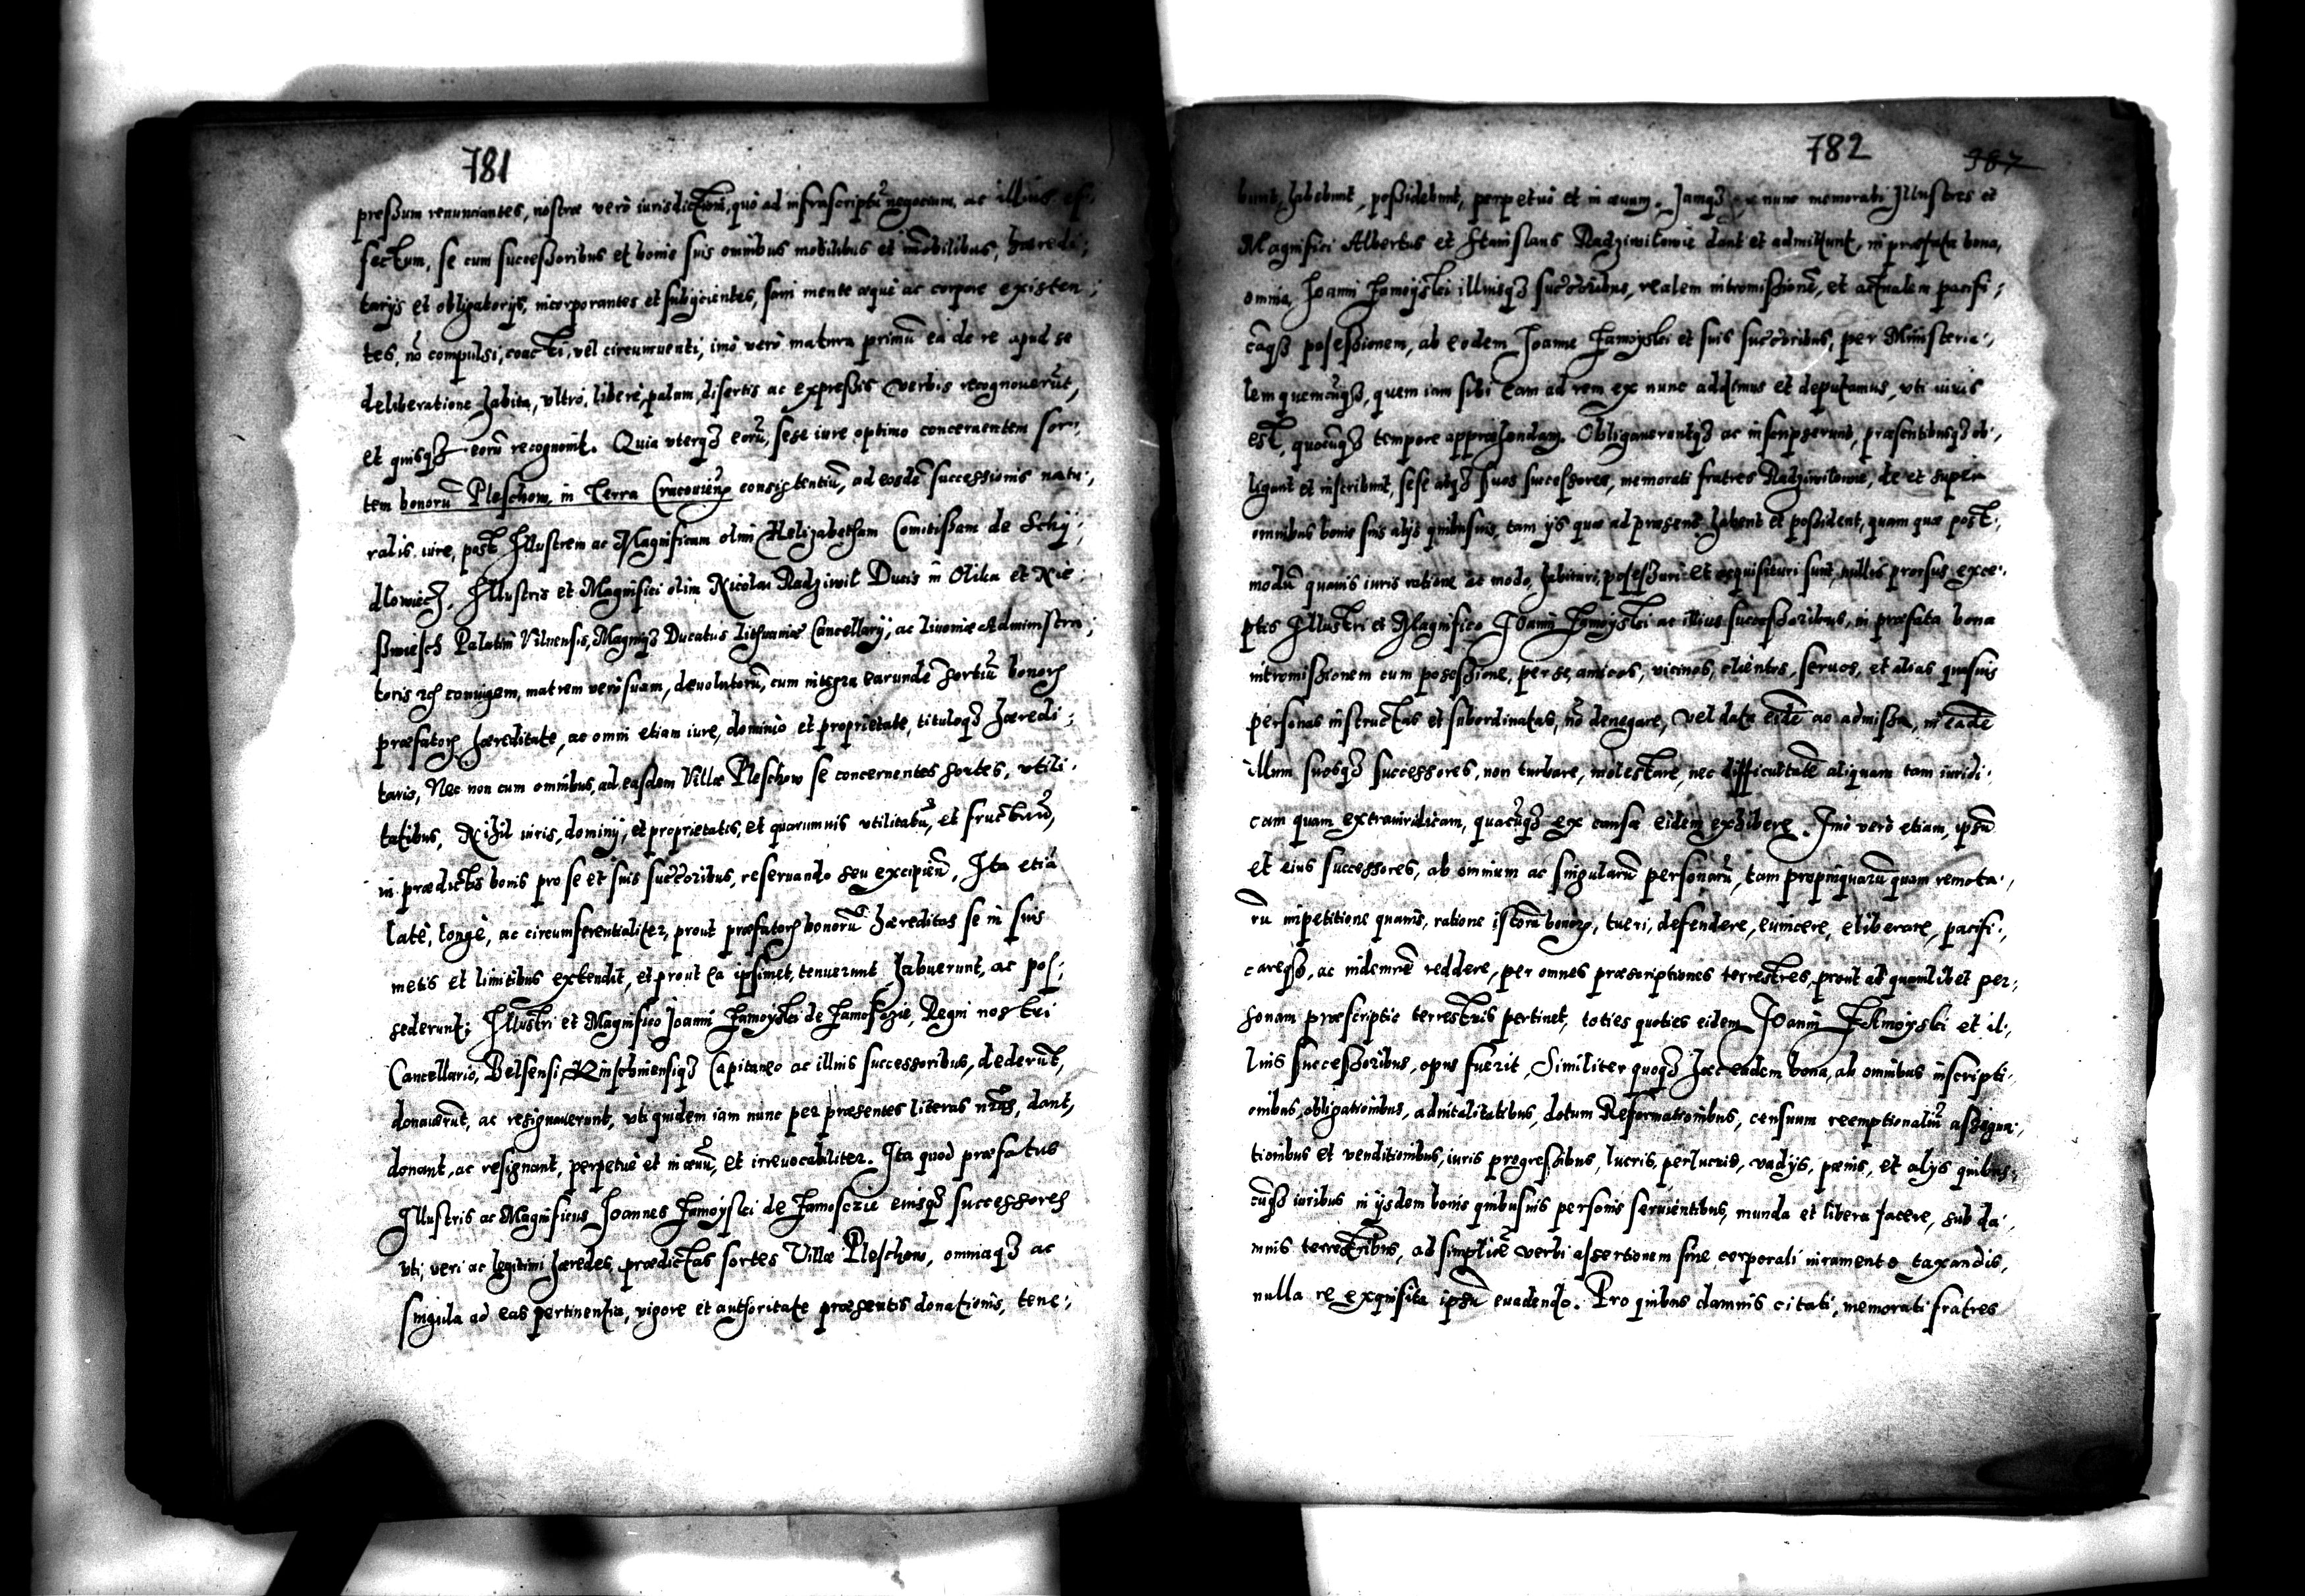 781
preßum renunciantes, nostræ verò iurisdictioni, quò ad infrascriptũ negocium, ac illius ef-
fectum, se cum successoribus et bonis suis omnibus mobilibus et im̃obilibus, hæredi-
tarijs et obligatorijs, incorporantes et subijcientes, sani mente æquè ac corpore existen-
tes, nõ compulsi, coacti, vel circumuenti, imò verò matura primũ ea de re apud se
deliberatione habita, vltrò, liberè, palam, disertis ac expreßis verbis recognouerũt,
et quisq3 eorũ recognouit. Quia vterq3 eorũ, sese iure optimo concernentem sor-
tem bonorũ Pleschow, in Terra Cracouień consistentiũ, ad eosdẽ successionis natu-
ralis iure, post Illustrem ac Magnificam olim Helizabetham Comitißam de Schy-
dlowiecz, Illustris et Magnifici olim Nicolai Radziwil Ducis in Olika et Nie-
ßwiesch Palatini Vilnensis, Magniq3 Ducatus Lithuaniæ Cancellarij, ac Liuoniæ Administra-
toris etc coniugem, matrem verò suam, deuolutorũ, cum integra earundẽ sortiũ bonorũ
præfatorũ hæreditate, ac omni etiam iure, dominio et proprietate, tituloq3 hæredi-
tario, Nec non cum omnibus, ad easdem Villæ Pleschow se concernentes sortes, vtili-
tatibus, Nihil iuris, dominij, et proprietatis, et quorumuis vtilitatũ, et fructuũ,
in prædictis bonis pro se et suis succ̃oribus, reseruando seu excipień, Ita etiã
latè, longè, ac circumferentialiter, prout præfatorũ bonorũ hæreditas se in suis
metis et limitibus extendit, et prout ea ipsimet, tenuerunt, habuerunt, ac pos-
sederunt; Illustri et Magnifico Joanni Zamoyski de Zamoscie, Regni nostri
Cancellario, Belsensi Knischinensiq3 Capitaneo ac illius successoribus, dederũt,
donauerũt, ac resignauerunt, vti quidem iam nunc per præsentes literas nr̃as, dant,
donant, ac resignant, perpetuè et in æuũ, et irreuocabiliter. Ita quòd præfatus
Illustris ac Magnificus Joannes Zamoyski de Zamoscie eiusq3 successores
vti, veri ac legitimi hæredes, prædictas sortes Villæ Pleschow, omniaq3 ac
singula ad eas pertinentia, vigore et authoritate præsentis donationis, tene-
782 387
bunt, habebunt, poßidebunt, perpetuò et in æuum. Jamq3 ex nunc memorati Illustres et
Magnifici Albertus et Stanislaus Radziwilowie dant et admittunt, in præfata bona,
omnia, Joanni Zamoyski illiusq3 succ̃oribus, realem intromißionẽ, et actualem pacifi-
cãq3 poseßionem, ab eodem Joanne Zamoyski et suis succ̃oribus, per Ministeria-
lem quemcũq3, quem iam sibi eam ad rem ex nunc addimus et deputamus, vti iuris
est, quocũq3 tempore appræhendam. Obligaueruntq3 ac inscripserunt, præsentibusq3 ob-
ligant et inscribunt, sese atq3 suos successores, memorati fratres Radziwilowie, de et super
omnibus bonis suis alijs quibusuis, tam ijs quæ ad præsens habent et poßident, quam quæ post-
modũ quauis iuris ratione ac modo, habituri, poseßuri et acquisituri sunt, nullis prorsus exce-
ptis Illustri et Magnifico Joanni Zamoyski ac illius succeßoribus, in præfata bona
intromißionem cum poseßione, per se, amicos, vicinos, clientes, seruos, et alias quasuis
personas instructas et subordinatas, nõ denegare, vel data eidẽ ac admißa, in eadẽ
illum suosq3 successores, non turbare, molestare, nec difficultatẽ aliquam tam iuridi-
cam quam extraiuridicam, quacũq3 ex causa eidem exhibere. Imò verò etiam, ipsũ
et eius successores, ab omnium ac singularũ personarũ, tam propinquarũ quam remota-
rũ impetitione quauis, ratione istorũ bonorũ, tueri, defendere, euincere, eliberare, pacifi-
careq3, ac indemnẽ reddere, per omnes præscriptiones terrestres, prout ad quamlibet per-
sonam præscriptio terrestris pertinet, toties quoties eidem Joanni Zamoyski et il-
lius succeßoribus, opus fuerit, Similiter quoq3 hæc eadem bona, ab omnibus inscripti-
onibus, obligationibus, aduitalitatibus, dotum Reformationibus, censuum reemptionaliũ aßigna-
tionibus et venditionibus, iuris progreßibus, lucris, perlucris, vadijs, pænis, et alijs quibus-
cũq3 iuribus in ijsdem bonis quibusuis personis seruientibus, munda et libera facere, sub da-
mnis terrestribus, ad simplicẽ verbi assertionem sine corporali iuramento taxandis,
nulla re exquisita ipsũ euadendo. Pro quibus damnis citati, memorati fratres